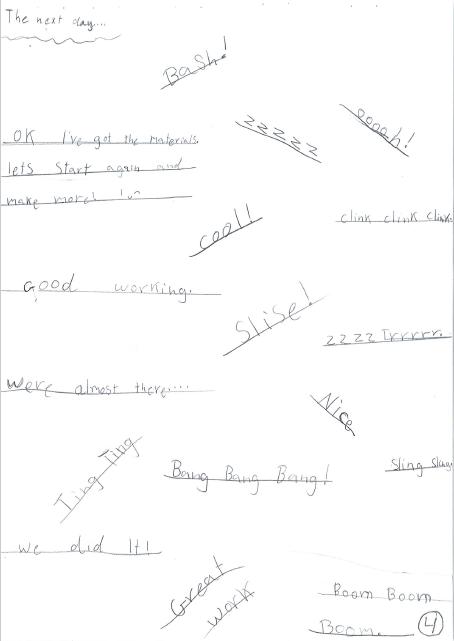 The next day....
Bash!
zzzzz
OK I've got the materials.
lets Start again and
make more!
cool!
clink clink clink
Good working.
Slise!
zzzz Trrrrr.
were almost there....
Nice
Ting Ting
Bang Bang Bang!
Sling Sling
we did It!
Great
work
Boom Boom
Boom.
4